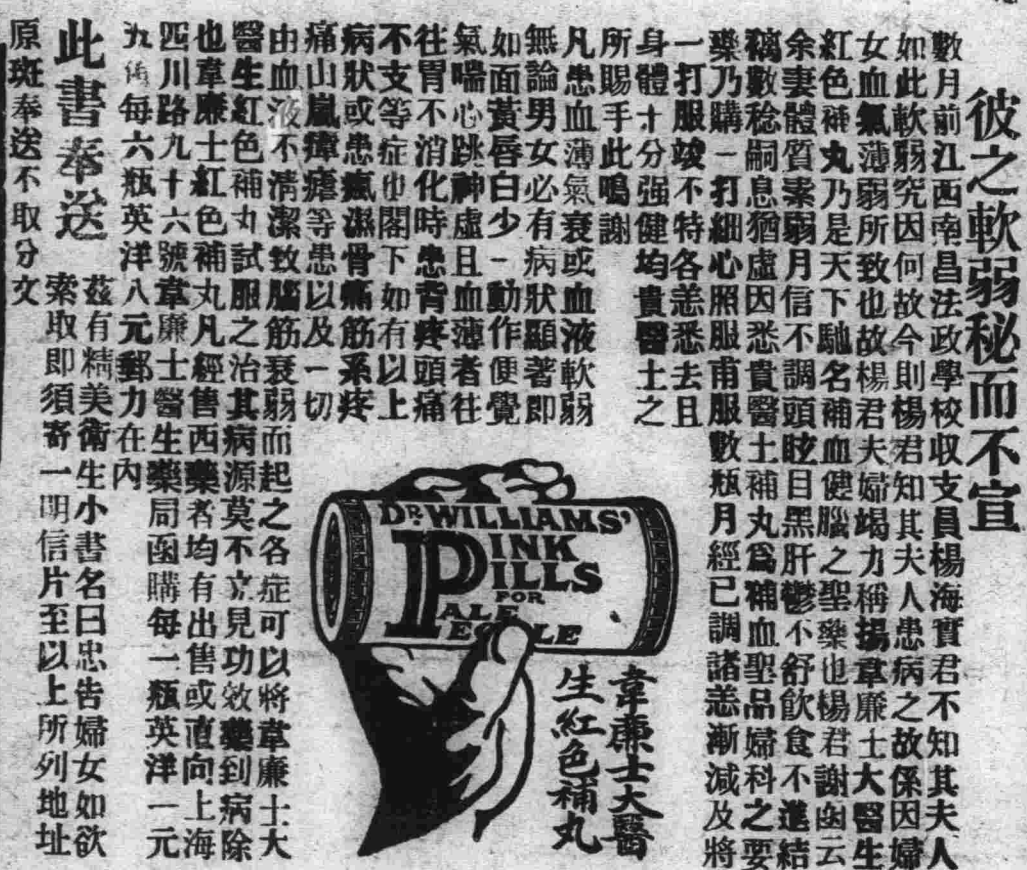 彼之軟弱秘而不宣
數月前江西南昌法政學校収支員楊海實君不知其夫人
如此軟弱究因何故今則楊君知其夫人患病之故係因婦
女血氣薄弱所致也故楊君夫婦竭力稱揚韋廉士大醫生
紅色補丸乃是天下馳名補血健腦之聖藥也楊君謝函云
余妻體質素弱月信不調頭眩目黑肝鬱不舒飲食不進結
褵數稔嗣息猶虛因悉貴醫士補丸爲補血聖品婦科之要
藥乃購一打細心照服甫服數瓶月經已調諸恙漸减及將
一打服竣不特各恙悉去且
身體十分强健均貴醫士之
所賜手此鳴謝
凡患血薄氣衰或血液軟弱
無論男女必有病狀顯著即
如面黃唇白少一動作便覺
氣喘心跳神虛且血薄者往
往胃不消化時患背疼頭痛
不支等症也閣下如有以上
病狀或患瘋濕骨痛筋系疼
痛山嵐瘴瘧等患以及一切
由血液不清潔致腦筋衰弱而起之各症可以將韋廉士大
醫生紅色補丸試服之治其病源莫不立見功效藥到病除
也韋廉士紅色補丸凡經售西藥者均有出售或直向上海
四川路九十六號韋廉士醫生藥局函購每一瓶英洋一元
九角每六瓶英洋八元郵力在內
此書奉送
茲有精美衛生小書名曰忠告婦女如欲
索取即須寄一明信片至以上所列地址
原班奉送不取分文
DR. WILLIAMS'
PINK
PILLS
FOR
PALE
PEOPLE
韋廉士大醫
生紅色補丸